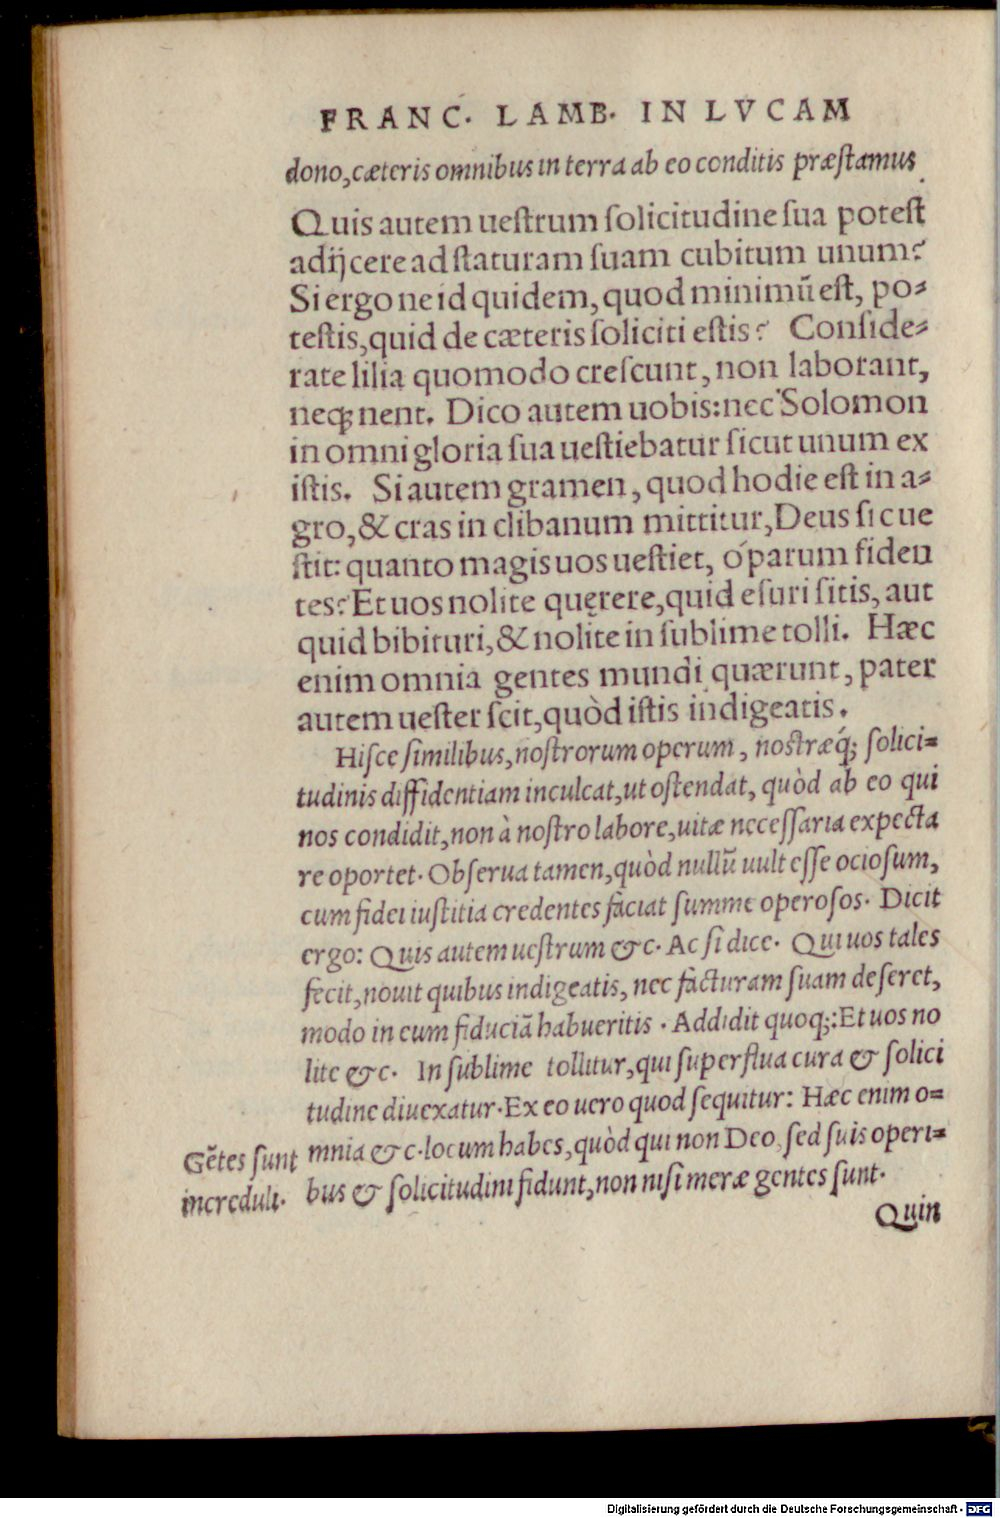 FRANC. LAMB. IN LVCAM
dono, cæteris omnibus in terra ab eo conditis præstamus.
Quis autem uestrum solicitudine sua potest
adijcere ad staturam suam cubitum unum?
Si ergo ne id quidem, quod minimũ est, po-
testis, quid de cæteris soliciti estis? Conside-
rate lilia quomodo crescunt, non laborant,
neq; nent. Dico autem uobis: nec Solomon
in omni gloria sua uestiebatur sicut unum ex
istis. Si autem gramen, quod hodie est in a-
gro, & cras in clibanum mittitur, Deus sic ue
stit: quanto magis uos uestiet, ó parum fiden
tes? Et uos nolite quęrere, quid esuri sitis, aut
quid bibituri, & nolite in sublime tolli. Hæc
enim omnia gentes mundi quærunt, pater
autem uester scit, quòd istis indigeatis.
Hisce similibus, nostrorum operum, nostræq́; solici-
tudinis diffidentiam inculcat, ut ostendat, quòd ab eo qui
nos condidit, non à nostro labore, uitæ necessaria expecta
re oportet. Obserua tamen, quòd nullũ uult esse ociosum,
cum fidei iustitia credentes faciat summe operosos. Dicit
ergo: Quis autem uestrum &c. Ac si dice. Qui uos tales
fecit, nouit quibus indigeatis, nec facturam suam deseret,
modo in eum fiduciã habueritis. Addidit quoq;: Et uos no
lite &c. In sublime tollitur, qui superflua cura & solici
tudine diuexatur. Ex eo uero quod sequitur: Hæc enim o-
mnia &c. locum habes, quòd qui non Deo, sed suis operi-
bus & solicitudini fidunt, non nisi meræ gentes sunt.
Gẽtes sunt
increduli.
Quin
Digitalisierung gefördert durch die Deutsche Forschungsgemeinschaft - DFG